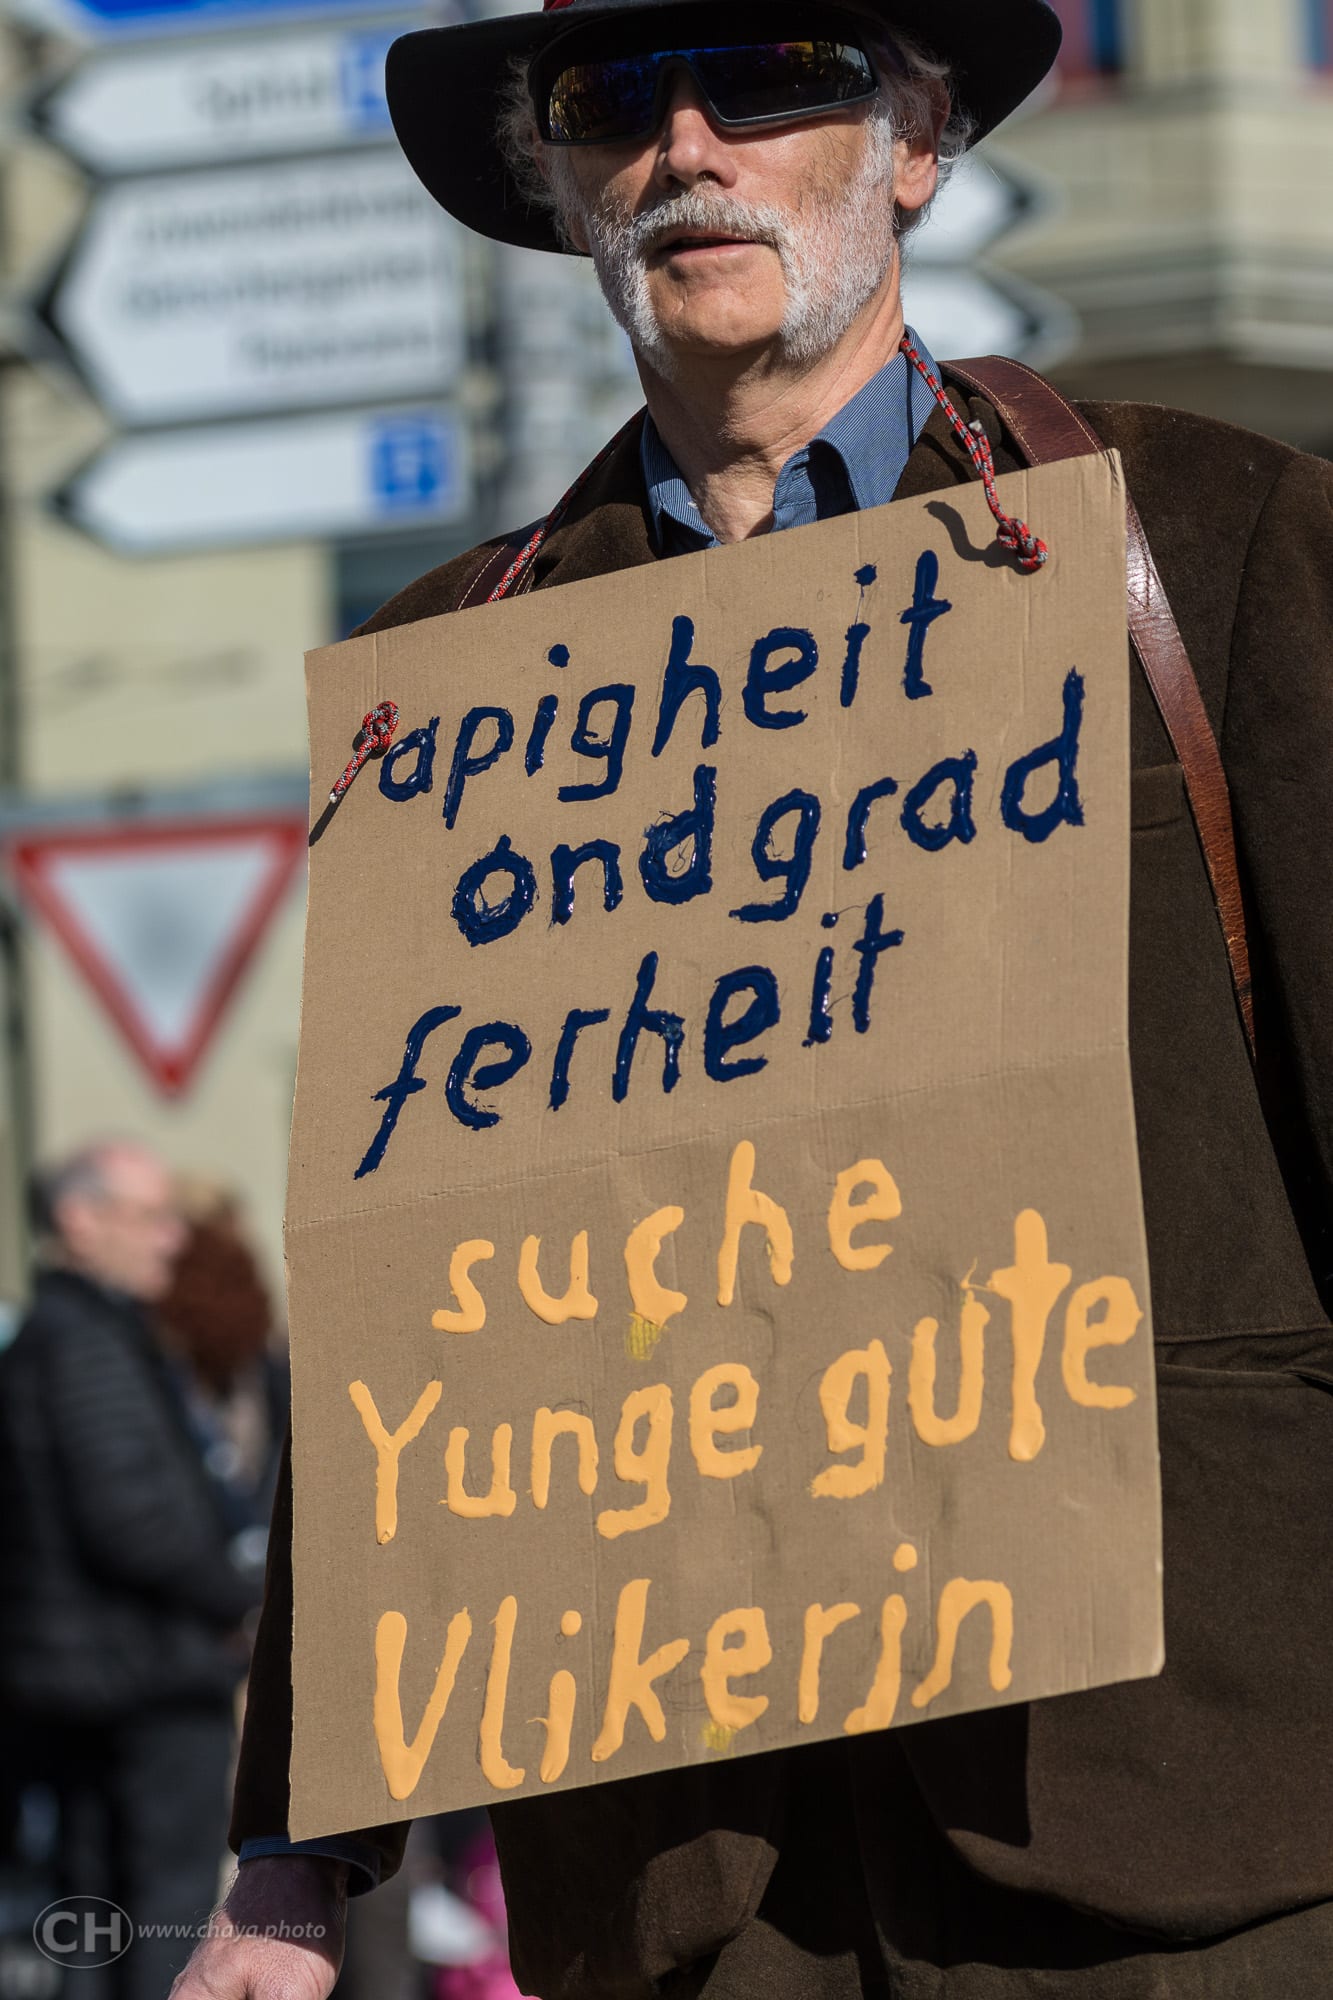 apigheit
ond grad
ferheit
suche
Yunge gute
Vlikerjn
CH www.chaya.photo